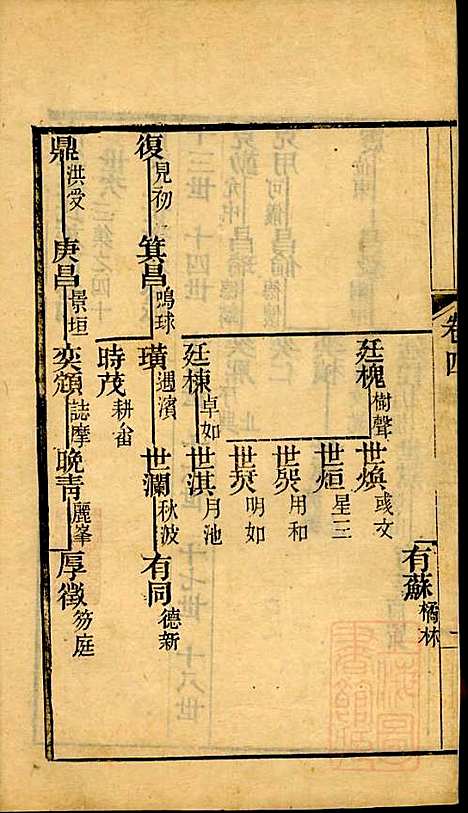 卷四
有蘇 橘林
廷槐 樹聲 世煥 彧文
世烜 星三
世𤋮 用和
世焚 明如
廷棟 卓如 世淇 月池
復 見初 箕昌 鳴球 璜 遇濱 世瀾 秋波 有同 德新
時茂 耕畬
鼎 洪受 庚昌 景垣 奕顏 誌摩 晚青 麗峯 厚徵 笏庭